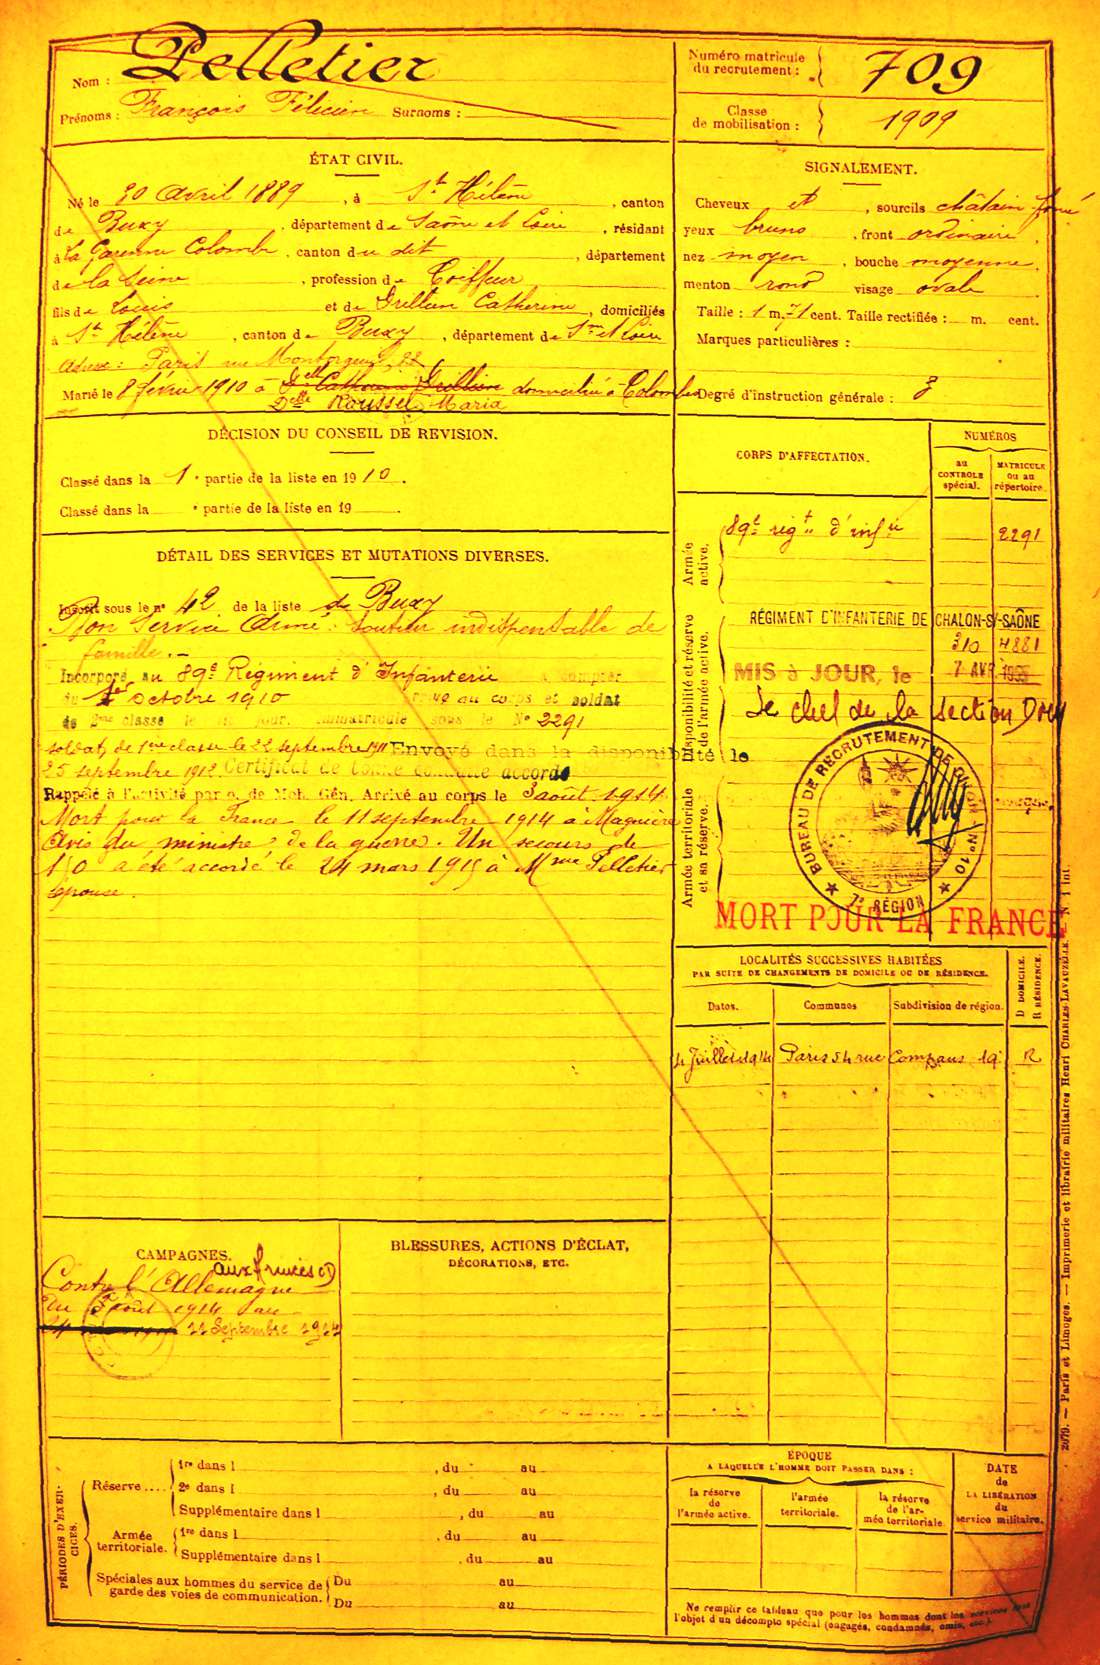 Nom : Pelletier
Prénoms : François Félicien Surnoms :
Numéro matricule du recrutement : 709
Classe de mobilisation : 1909
ÉTAT CIVIL.
Né le 30 avril 1889, à St Hélène, canton
de Buxy, département de Saône et Loire, résidant
à la Garenne Colombe, canton du dit, département
de la Seine, profession de Coiffeur
fils de Louis et de Grillien Catherine, domiciliés
à St Hélène, canton de Buxy, département de S. et Loire
Adresse : Paris rue Montorgueil,
Marié le 8 février 1910 à Delle Catherine Grillière domiciliée à Colombes
Delle Roussel Maria
SIGNALEMENT.
Cheveux et, sourcils châtain foncé
yeux bruns, front ordinaire,
nez moyen, bouche moyenne,
menton rond visage ovale
Taille : 1 m. 71 cent. Taille rectifiée : m. cent.
Marques particulières :
Degré d'instruction générale : 3
DÉCISION DU CONSEIL DE REVISION.
Classé dans la 1e partie de la liste en 1910.
Classé dans la e partie de la liste en 19
DÉTAIL DES SERVICES ET MUTATIONS DIVERSES.
Inscrit sous le no 42 de la liste de Buxy
Bon Service Armé. Soutien indispensable de
famille. –
Incorporé au 89e Régiment d'Infanterie à compter
du 1er octobre 1910 au corps et soldat
de 2me classe le dit jour. Immatriculé sous le No 2291
soldat de 1re classe le 22 septembre 1911 Envoyé dans la disponibilité le
25 septembre 1912. Certificat de bonne conduite accordé
Rappelé à l'activité par o. de Mob. Gén. Arrivé au corps le 3 août 1914.
Mort pour la France le 11 septembre 1914 à Magnières
Avis du ministre de la guerre. Un secours de
150 a été accordé le 24 mars 1915 à Mme Pelletier
épouse.
CORPS D'AFFECTATION.
NUMÉROS
au CONTROLE spécial.
MATRICULE ou au répertoire.
Armée active.
89e régt d'infie 2291
Disponibilité et réserve de l'armée active.
RÉGIMENT D'INFANTERIE DE CHALON-S/-SAÔNE
310 4881
MIS à JOUR, le 7 AVR.
Le chef de la section
Armée territoriale et sa réserve.
BUREAU DE RECRUTEMENT DE DIJON - No 10
7e RÉGION
MORT POUR LA FRANCE
LOCALITÉS SUCCESSIVES HABITÉES
PAR SUITE DE CHANGEMENTS DE DOMICILE OU DE RÉSIDENCE.
Dates. Communes Subdivision de région. D DOMICILE. R RÉSIDENCE.
4 Juillet 1914 Paris 54 rue Compans 19e R
CAMPAGNES.
aux Armées
Contre l'Allemagne
du 3 août 1914 au
11 Septembre 1914
BLESSURES, ACTIONS D'ÉCLAT,
DÉCORATIONS, ETC.
PÉRIODES D'EXERCICES.
Réserve .... 1re dans l , du au
2e dans l , du au
Supplémentaire dans l , du au
Armée territoriale. 1re dans l , du au
Supplémentaire dans l , du au
Spéciales aux hommes du service de garde des voies de communication. Du au
Du au
ÉPOQUE
A LAQUELLE L'HOMME DOIT PASSER DANS :
la réserve de l'armée active.
l'armée territoriale.
la réserve de l'armée territoriale.
DATE de LA LIBÉRATION du service militaire.
Ne remplir ce tableau que pour les hommes dont les services font
l'objet d'un décompte spécial (engagés, condamnés, omis, etc.).
2079. — Paris et Limoges. — Imprimerie et librairie militaires Henri CHARLES-LAVAUZELLE. — N. 1 int.